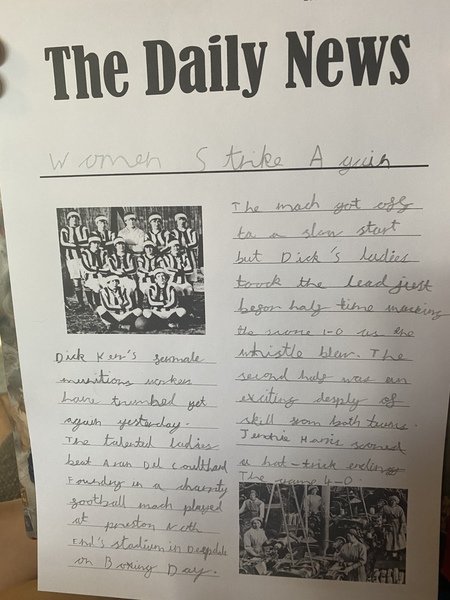 The Daily News
Women Strike Again
Dick Kerr's female
munitions workers
have trumbed yet
again yesterday.
The talented ladies
beat Aran Del Coulthard
Foundry in a charity
football mach played
at preston Noth
End's stadium in Deepdale
on Boxing Day.
The mach got off
to a slow start
but Dick's ladies
toock the lead just
befor half time macking
the score 1-0 as the
whistle blew. The
second half was an
exciting desply of
skill from both teams.
Jennie Haris scored
a hat-trick ending
The game 4-0.